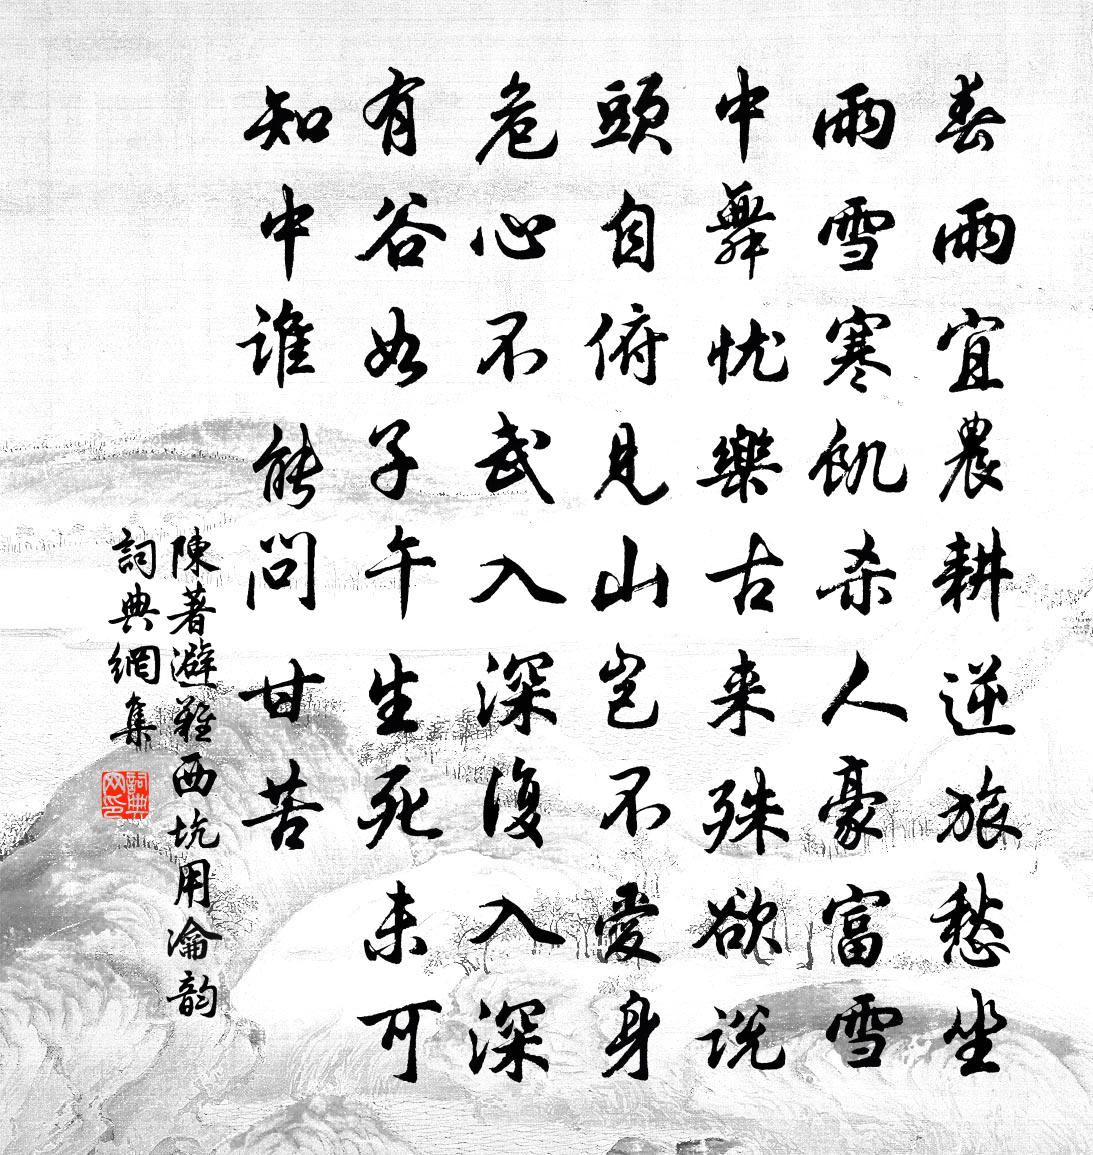 春雨宜農耕逆旅愁坐
雨雪寒飢杀人豪富雪
中舞忧樂古来殊欲说
頭自俯見山岂不愛身
危心不武入深復入深
有谷如子午生死未可
知中谁能問甘苦
陳著避難西坑用瀹韵
詞典網集
詞典网印